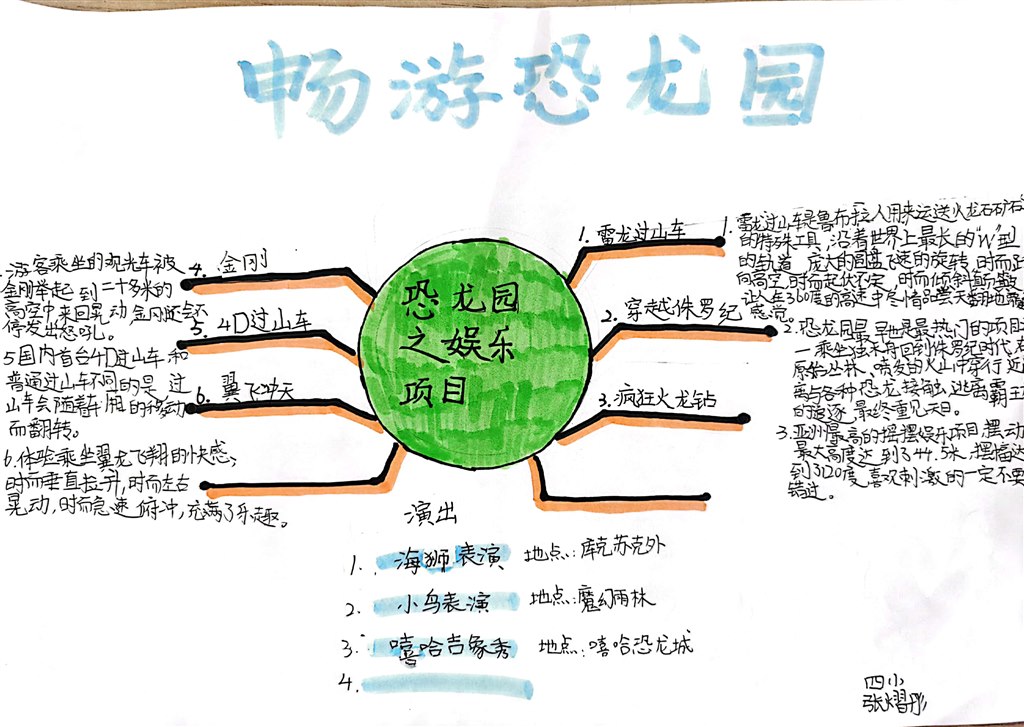 畅游恐龙园
恐龙园
之娱乐
项目
1. 雷龙过山车
2. 穿越侏罗纪
3. 疯狂火龙钻
4. 金刚
5. 4D过山车
6. 翼飞冲天
1. 雷龙过山车是鲁布拉人用来运送火龙石矿石
的特殊工具,沿着世界上最长的"W"型
的轨道,庞大的圆盘飞速的旋转,时而
向高空,时而起伏不定,时而倾斜
让人在360度的高速中尽情品尝天翻地
感觉。
2. 恐龙园最早也是最热门的项目
一乘坐独木舟回到侏罗纪时代,
原始丛林、喷发的火山中穿行,近
离与各种恐龙接触,逃离霸王
的追逐,最终重见天日。
3. 亚洲最高的摇摆娱乐项目,摆动
最大高度达到了44.5米,摆幅达
到320度,喜欢刺激的一定不要
错过。
游客乘坐的观光车被
金刚举起到二十多米的
高空中来回晃动,金刚还会不
停发出怒吼。
5 国内首台4D过山车和
普通过山车不同的是,过
山车会随着用的移动
而翻转。
6. 体验乘坐翼龙飞翔的快感,
时而垂直拉升,时而左右
晃动,时而急速俯冲,充满了乐趣。
演出
1. 海狮表演 地点:库克苏克外
2. 小鸟表演 地点:魔幻雨林
3. 嘻哈吉象秀 地点:嘻哈恐龙城
4.
四小
张熠彤